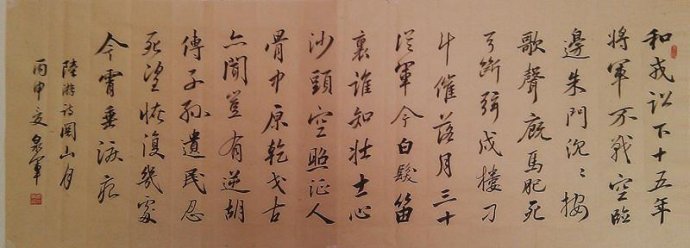 和戎詔下十五年
將軍不戰空臨
邊朱門沈々按
歌舞廄馬肥死
弓斷弦戍樓刁
斗催落月三十
從軍今白髮笛
裏誰知壯士心
沙頭空照征人
骨中原乾戈古
亦聞豈有逆胡
傳子孫遺民忍
死望恢復幾處
今宵垂淚痕
陸游詩關山月
丙申